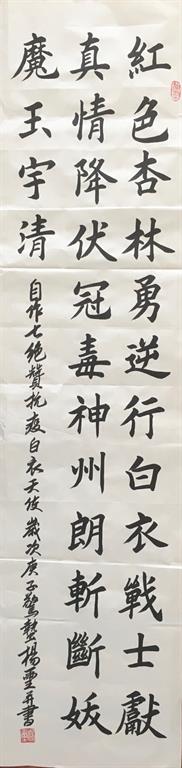 紅色杏林勇逆行白衣戰士獻
真情降伏冠毒神州朗斬斷妖
魔玉宇清
自作七絕贊抗疫白衣天使歲次庚子驚蟄楊雲并書